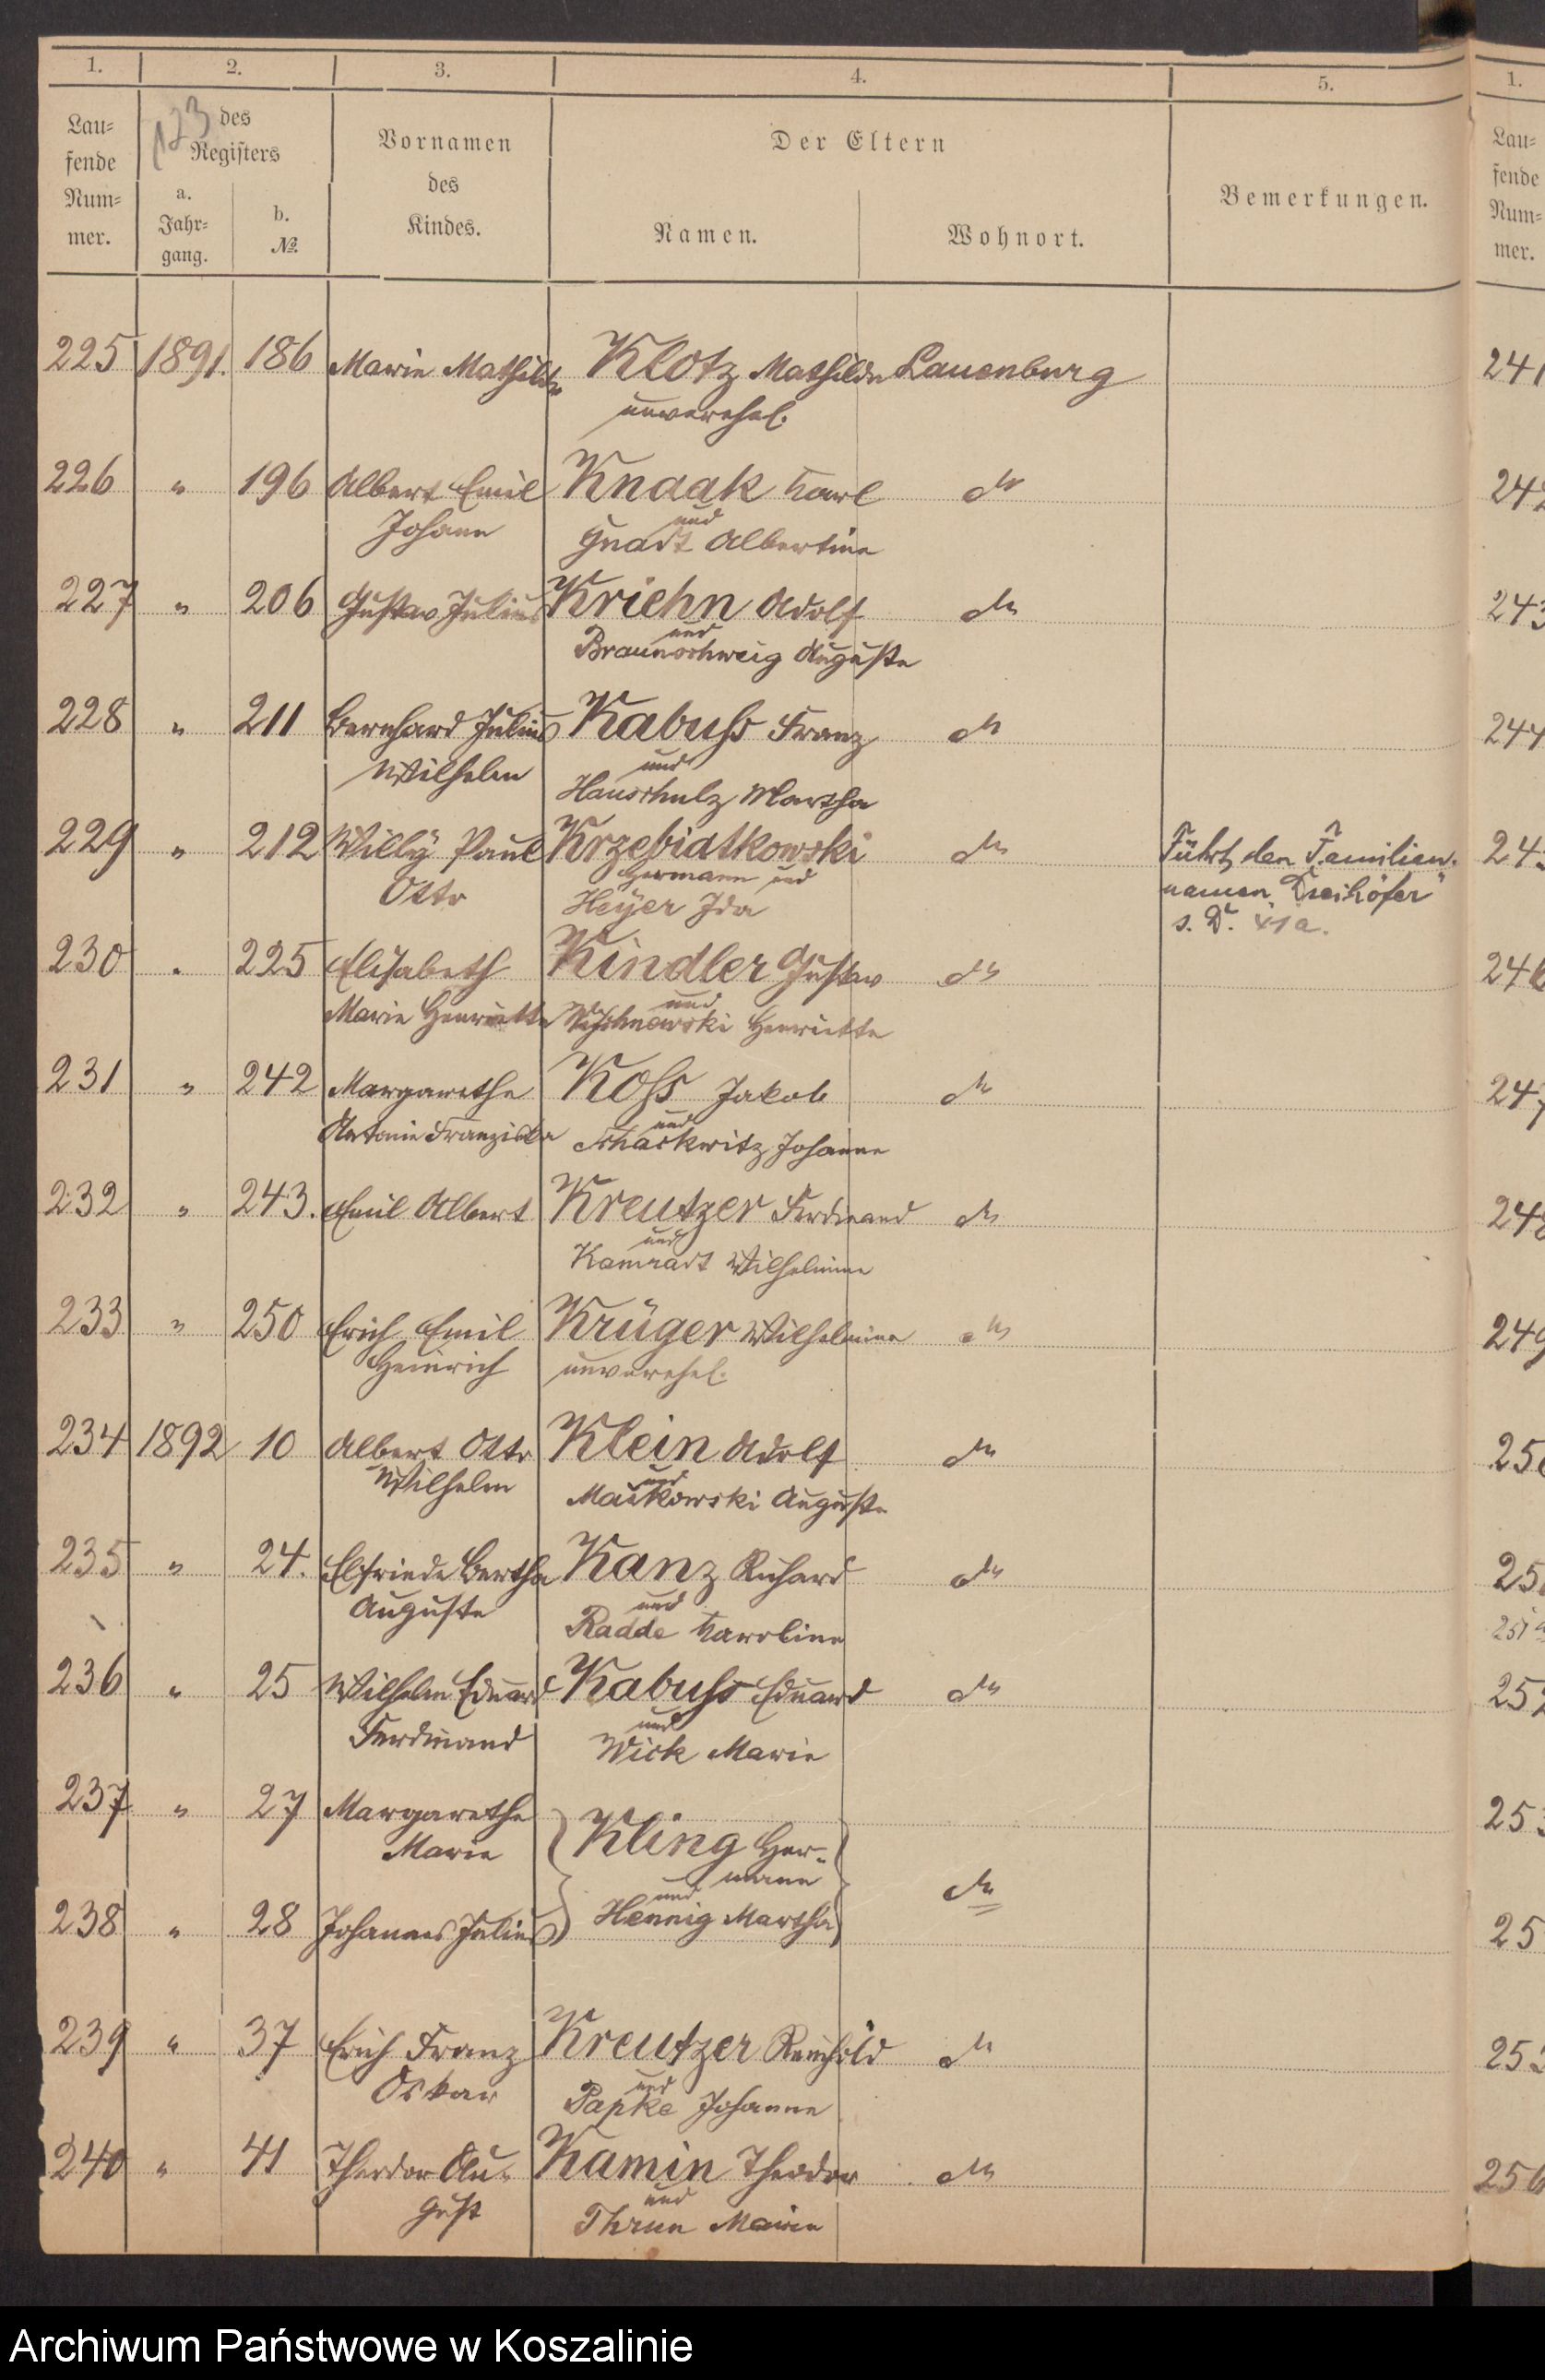 1. 2. 3. 4. 5. 1.
123
Lau=
fende
Num=
mer.
des
Registers
a.
Jahr=
gang.
b.
№.
Vornamen
des
Kindes.
Der Eltern
Namen. Wohnort.
Bemerkungen.
Lau=
fende
Num=
mer.
225 1891. 186 Marie Mathilde Klotz Mathilde Lauenburg
unverehel.
226 " 196 Albert Emil Knaak Karl do
Johann und
Gnadt Albertine
227 " 206 Gustav Julius Kriehn Adolf do
und
Braunschweig Auguste
228 " 211 Bernhard Julius Kabuss Franz do
Wilhelm und
Hanschulz Martha
229 " 212 Willy Paul Krzebiatkowski do Führt den Familien-
Otto Hermann und namen "Dreihöfer"
Heyer Ida
230 " 225 Elisabeth Kindler Gustav do
Marie Henriette und
Henriette
231 " 242 Margarethe Koss Jakob do
Antonie Franziska und
Schackwitz Johanne
232 " 243. Emil Albert Kreutzer Ferdinand do
und
Kamradt Wilhelmine
233 " 250 Erich Emil Krüger Wilhelmine do
Heinrich unverehel.
234 1892 10 Albert Otto Klein Adolf do
Wilhelm und
Auguste
235 " 24. Elfriede Bertha Kanz Richard do
Auguste und
Radde Karoline
236 " 25 Wilhelm Eduard Kabuss Eduard do
Ferdinand und
Wick Marie
237 " 27 Margarethe
Marie Kling Her-
mann
und do
238 " 28 Johannes Julius Hennig Martha
239 " 37 Erich Franz Kreutzer Reinhold do
Oskar und
Papke Johanne
240 " 41 Theodor Au- Kamin Theodor do
gust und
Thrun Marie
Archiwum Państwowe w Koszalinie